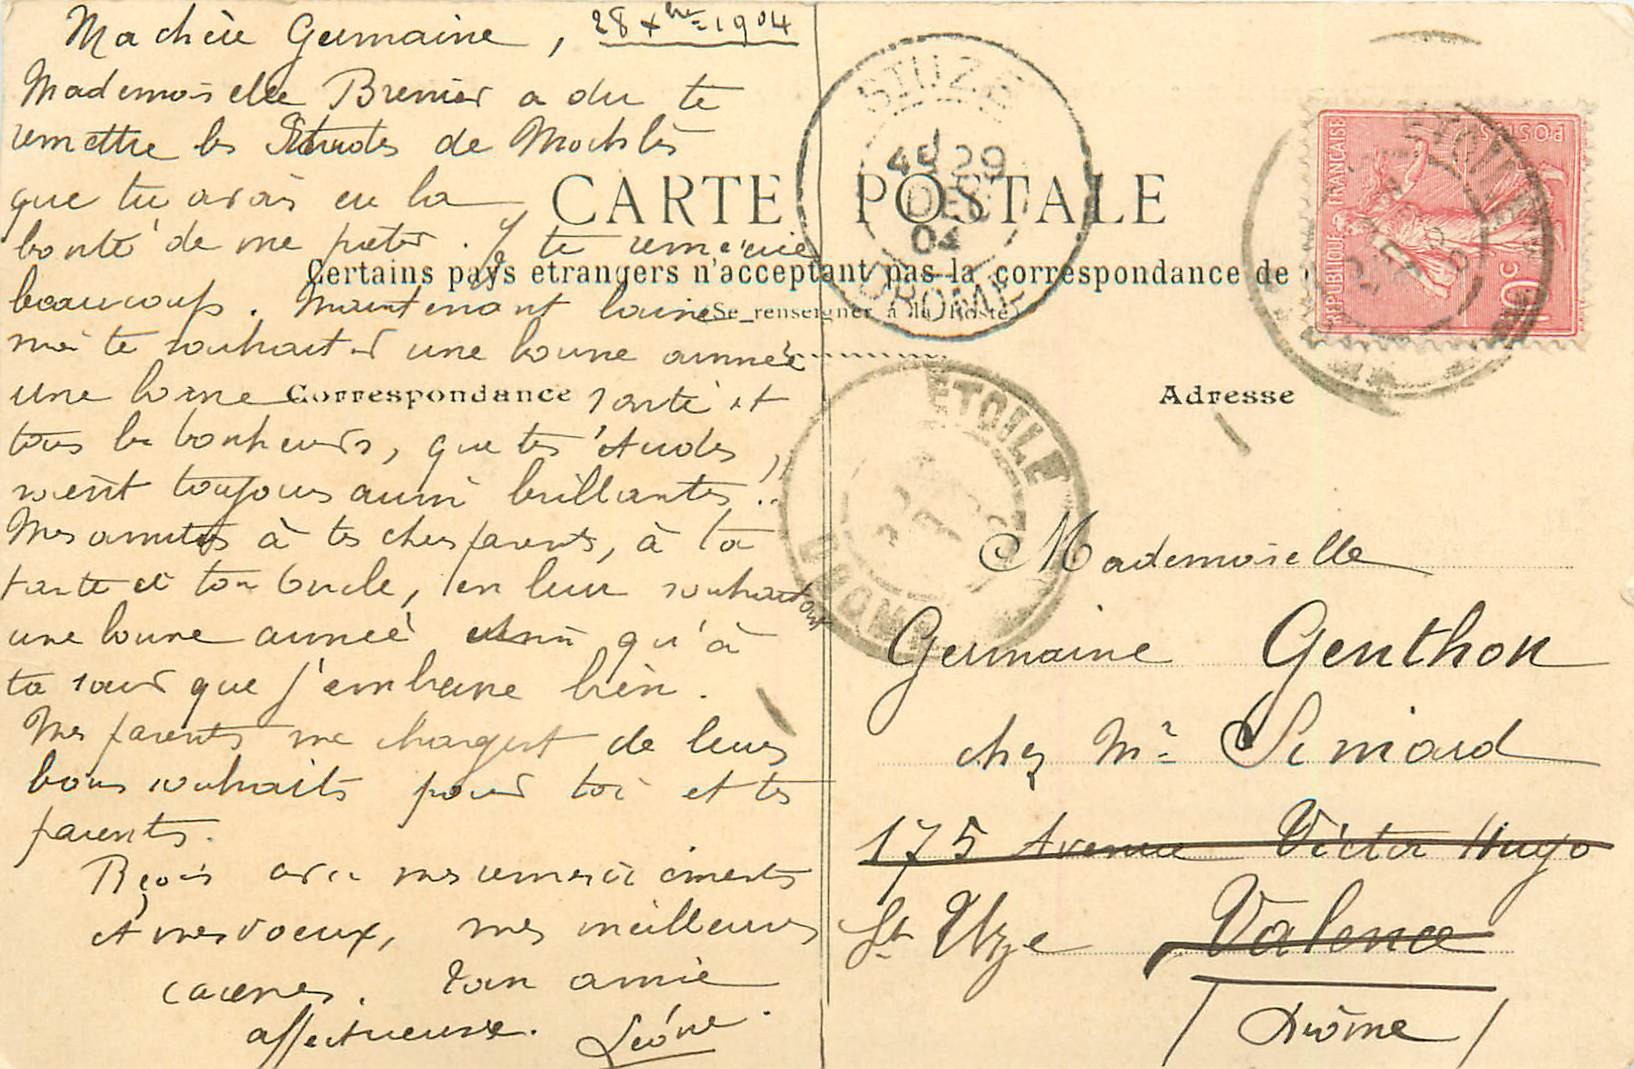 Ma chère Germaine, 28 Xbre 1904
Mademoiselle Brenier a du te
remettre les Etudes de
que tu avais eu la
bonté de me prêter. Je te remercie
beaucoup. Maintenant laisse
moi te souhaiter une bonne année
une bonne santé et
tous les bonheurs, que tes études
soient toujours aussi brillantes !!
Mes amitiés à tes chers parents, à ta
tante et ton Oncle, en leur souhaitant
une bonne année ainsi qu'à
ta sœur que j'embrasse bien.
Mes parents me chargent de leurs
bons souhaits pour toi et tes
parents.
Reçois avec mes remerciements
et mes vœux, mes meilleures
caresses. Ton amie
affectueuse. Léone.
CARTE POSTALE
Certains pays etrangers n'acceptant pas la correspondance de
(Se renseigner à la Poste)
Correspondance
Adresse
Mademoiselle
Germaine Genthon
chez Mr Simard
175 Avenue Victor Hugo
St Uze Valence
(Drôme)
REPUBLIQUE FRANÇAISE
POSTES
10c
ST UZE
29
DEC
04
DROME
ETOILE
DROME
ETOILE